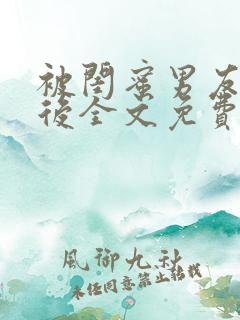 被閨蜜男友
後全文免費
風御九秋
未經同意禁止轉載